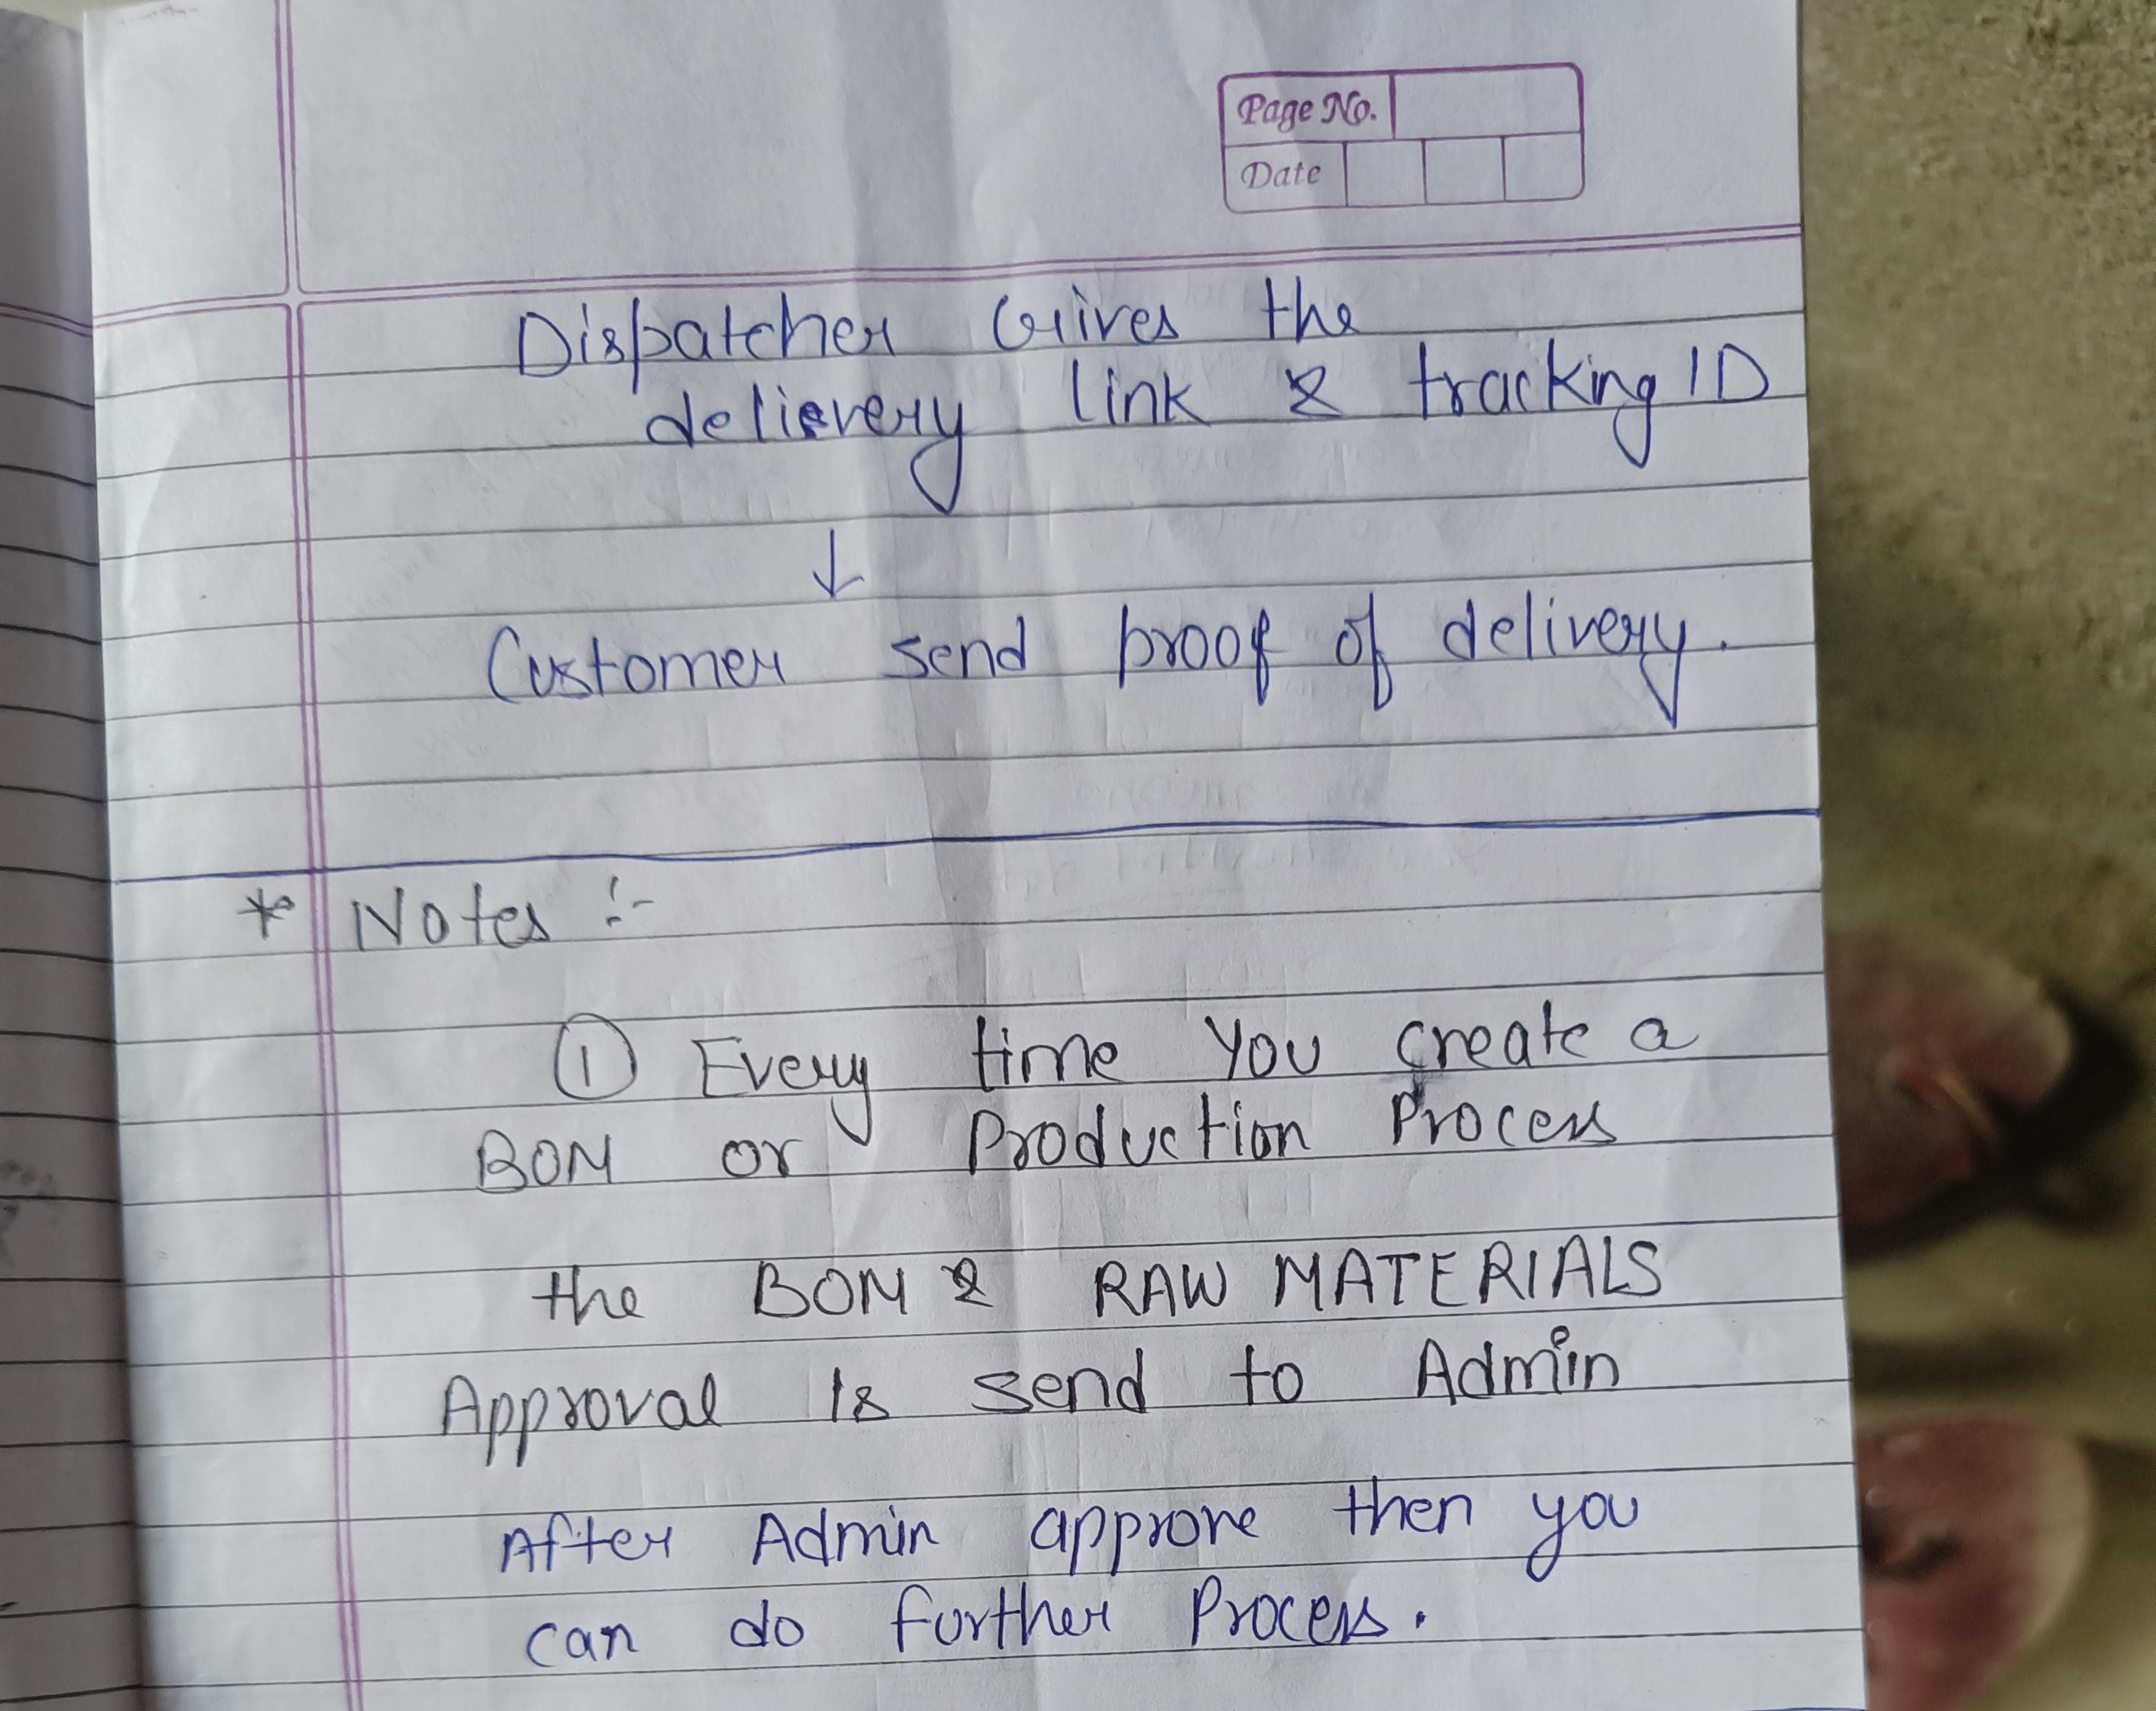 Page No.
Date
Dispatcher Gives the
delievery link & tracking ID
↓
Customer send proof of delivery.
* Notes :-
① Every time you create a
BOM or Production Process
the BOM & RAW MATERIALS
Approval is send to Admin
After Admin approve then you
can do further Process.